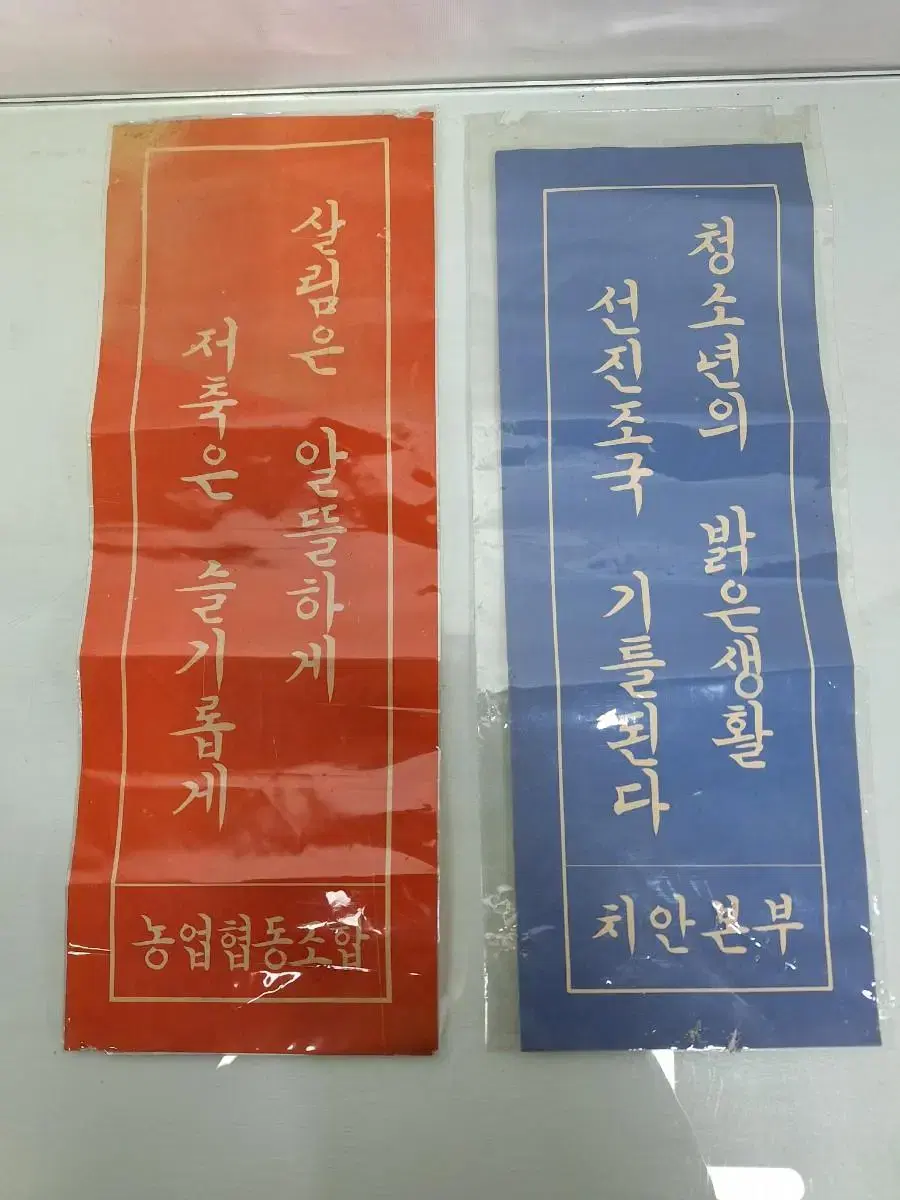 살림은 알뜰하게
저축은 슬기롭게
농업협동조합
청소년의 밝은생활
선진조국 기틀된다
치안본부